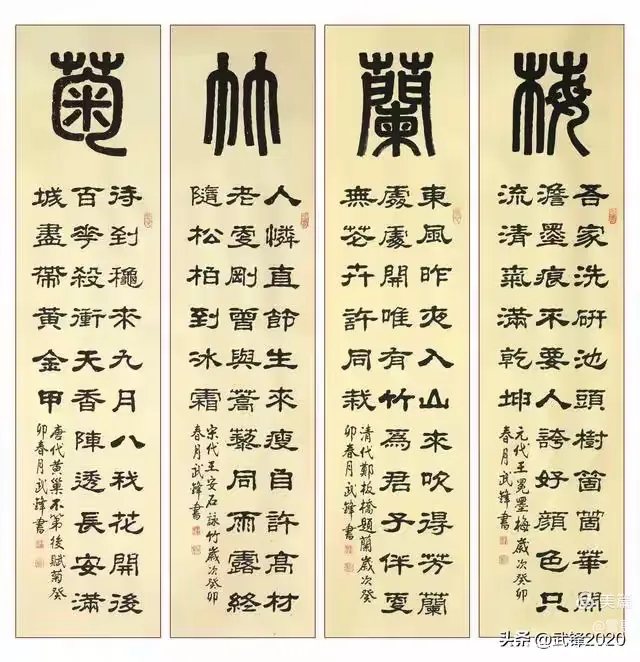 梅
吾家洗研池頭樹箇箇華開
澹墨痕不要人誇好顏色只
流清氣滿乾坤
元代王冕墨梅歲次癸卯
春月武鋒書
蘭
東風昨夜入山來吹得芳蘭
處處開唯有竹爲君子伴更
無花卉許同栽
清代鄭板橋題蘭歲次癸
卯春月武鋒書
竹
人憐直節生來瘦自許高材
老更剛曾與蒿藜同雨露終
隨松柏到冰霜
宋代王安石詠竹歲次癸卯
春月武鋒書
菊
待到穐來九月八我花開後
百華殺衝天香陣透長安滿
城盡帶黃金甲
唐代黃巢不第後賦菊癸
卯春月武鋒書
美篇
头条 @武锋2020